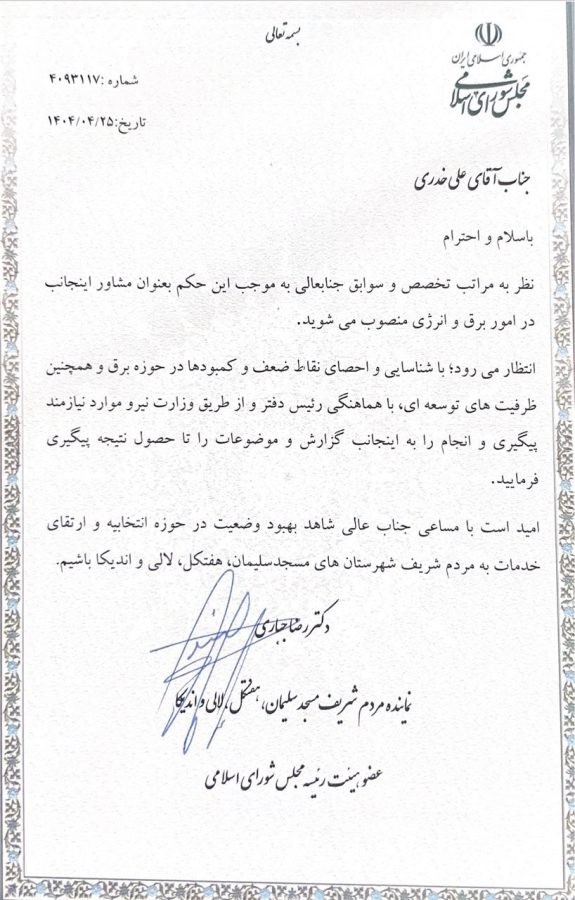 بسمه تعالی
جمهوری اسلامی ایران
مجلس شورای اسلامی
شماره :۴۰۹۳۱۱۷
تاریخ:۱۴۰۴/۰۴/۲۵
جناب آقای علی خدری
باسلام و احترام
نظر به مراتب تخصص و سوابق جنابعالی به موجب این حکم بعنوان مشاور اینجانب
در امور برق و انرژی منصوب می شوید.
انتظار می رود؛ با شناسایی و احصای نقاط ضعف و کمبودها در حوزه برق و همچنین
ظرفیت های توسعه ای، با هماهنگی رئیس دفتر و از طریق وزارت نیرو موارد نیازمند
پیگیری و انجام را به اینجانب گزارش و موضوعات را تا حصول نتیجه پیگیری
فرمایید.
امید است با مساعی جناب عالی شاهد بهبود وضعیت در حوزه انتخابیه و ارتقای
خدمات به مردم شریف شهرستان های مسجدسلیمان، هفتکل، لالی و اندیکا باشیم.
دکتر رضا جباری
نماینده مردم شریف مسجد سلیمان، هفتکل، لالی و اندیکا
عضو هیئت رئیسه مجلس شورای اسلامی